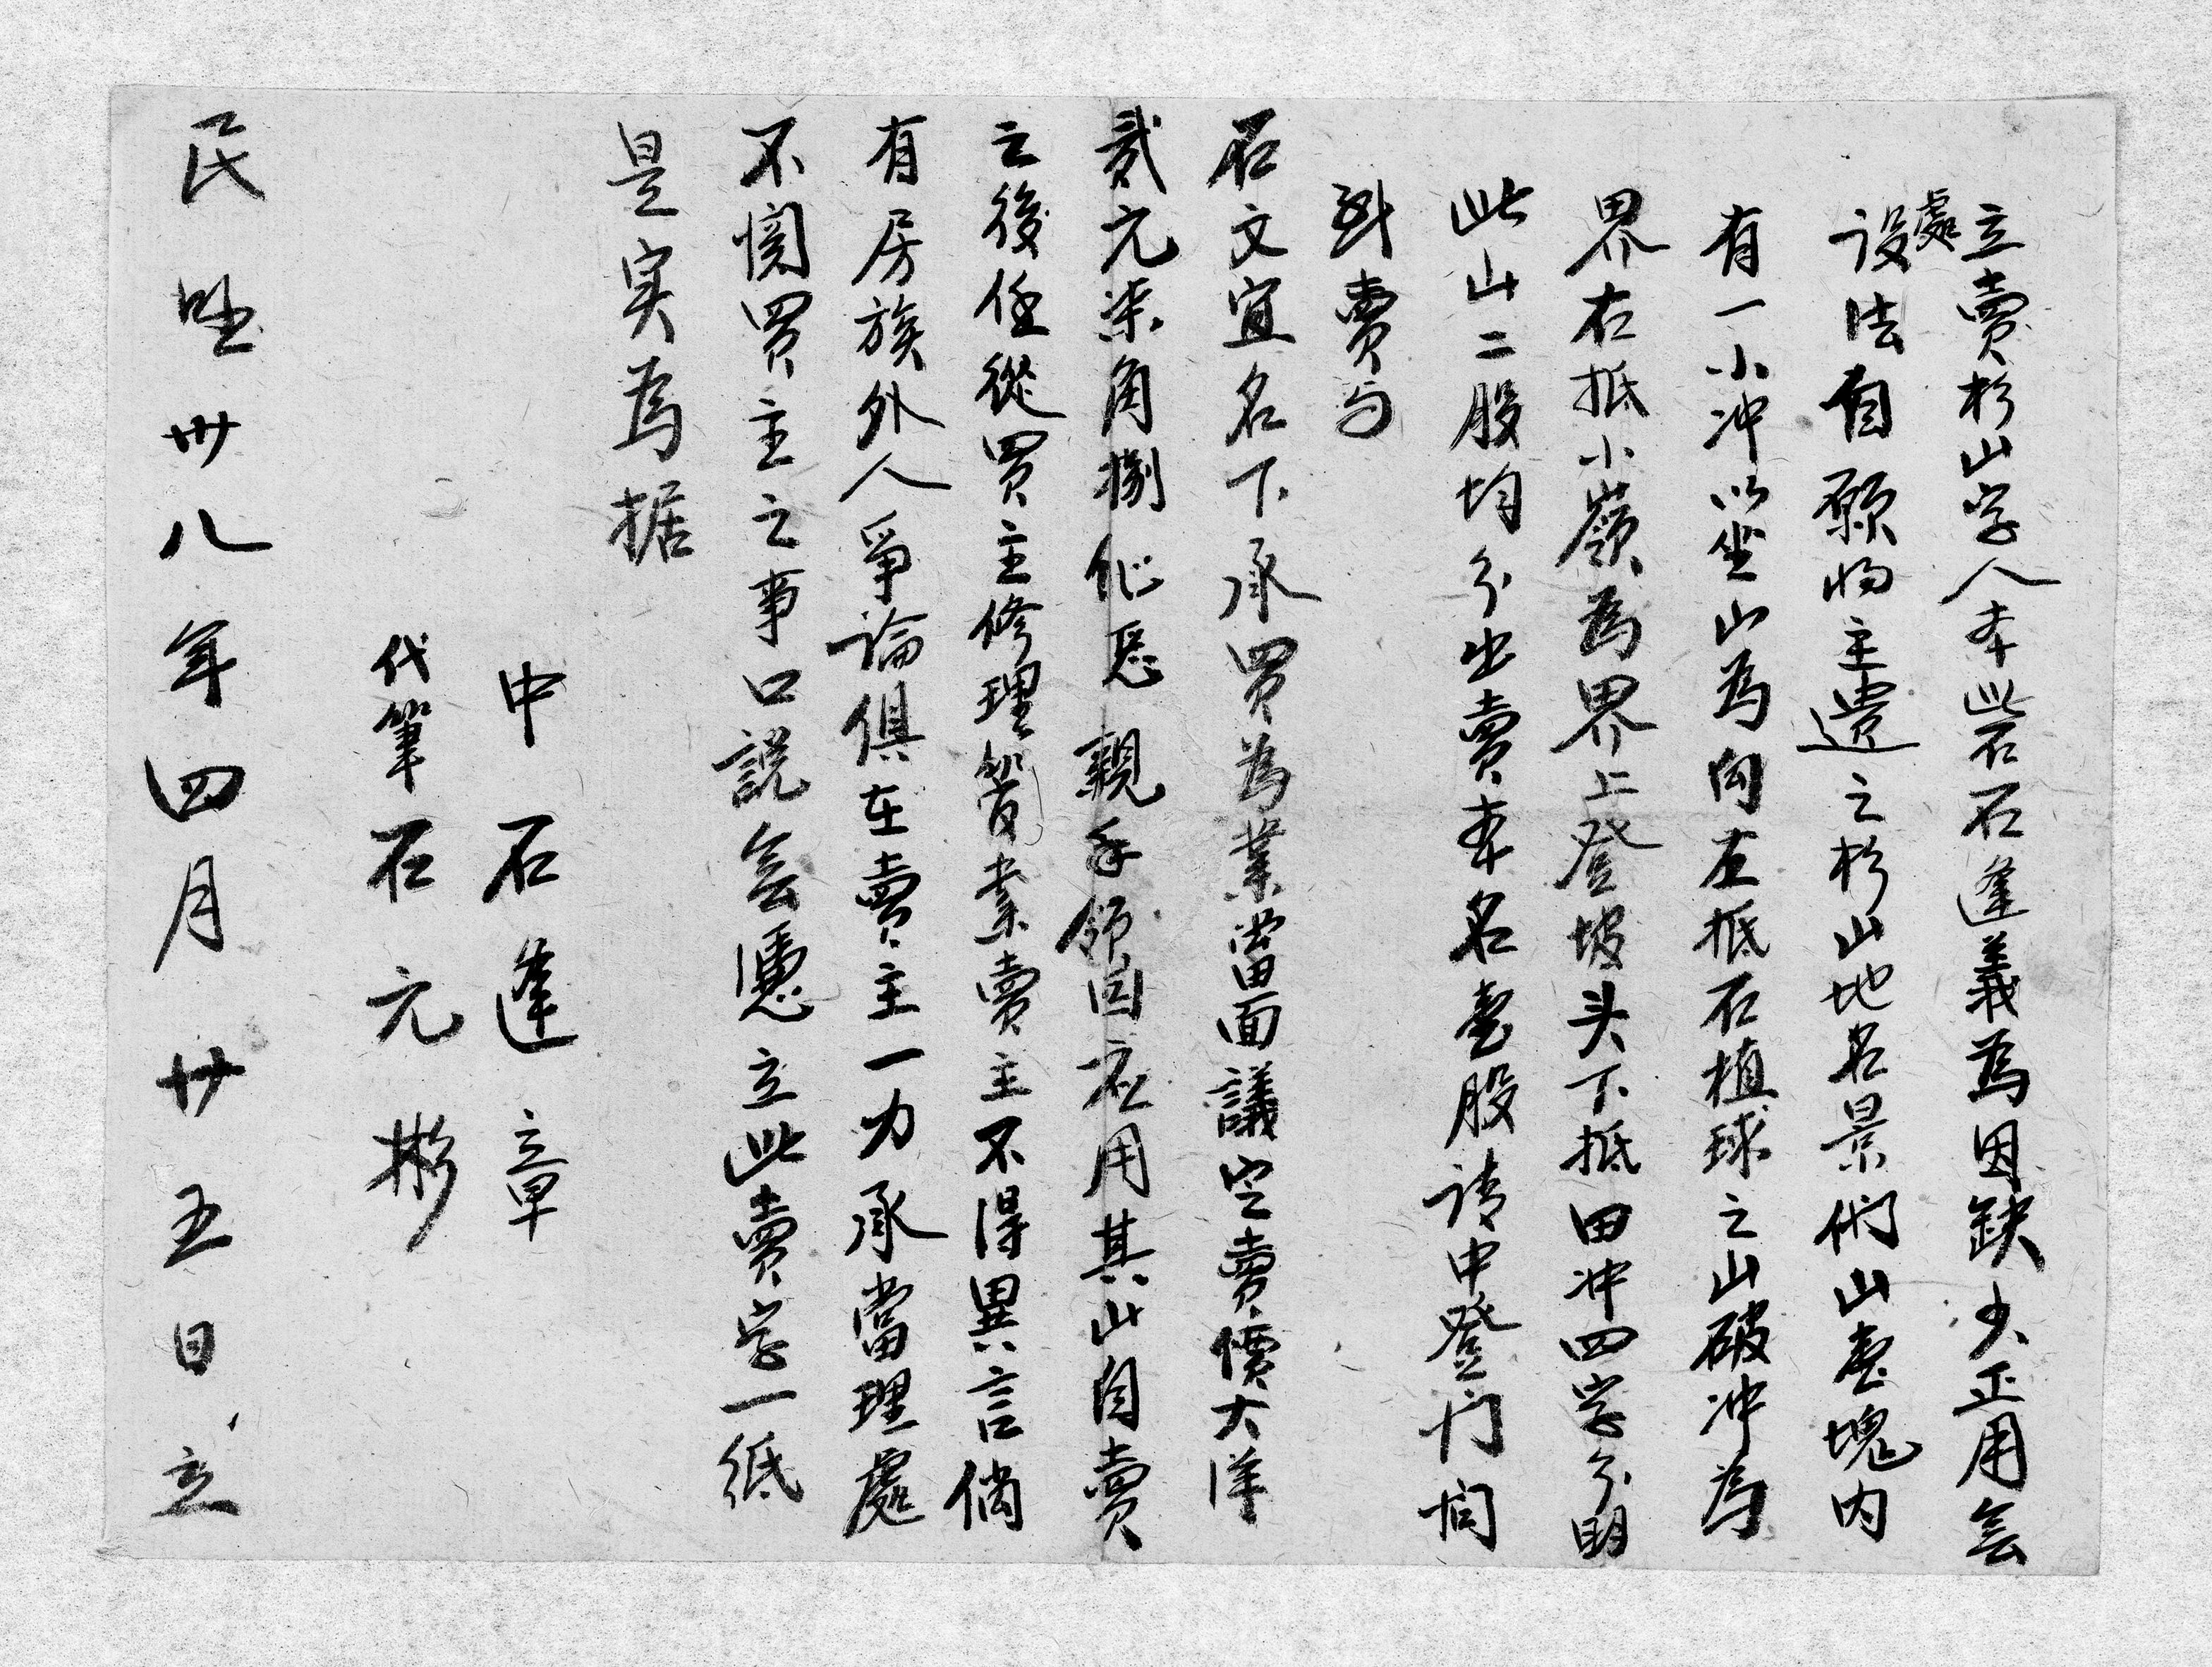 立賣杉山字人本砦石逢義為因缺少正用無
處設法自願將主遺之杉山地名景們山壹塊內
有一小冲以坐山為向左抵石植球之山破冲為
界右抵小嶺為界上登坡头下抵田冲四字分明
此山二股均分出賣本名壹股請中登门問
到賣与
石文宜名下承買為業當面議定賣價大洋
貳元柒角捌仙悉親手領回應用其山自賣
之後任從買主修理管業賣主不得異言倘
有房族外人爭論俱在賣主一力承當理處
不関買主之事口説無憑立此賣字一纸
是实為据
中石逢章
代筆石元彬
民国卅八年四月廿五日立